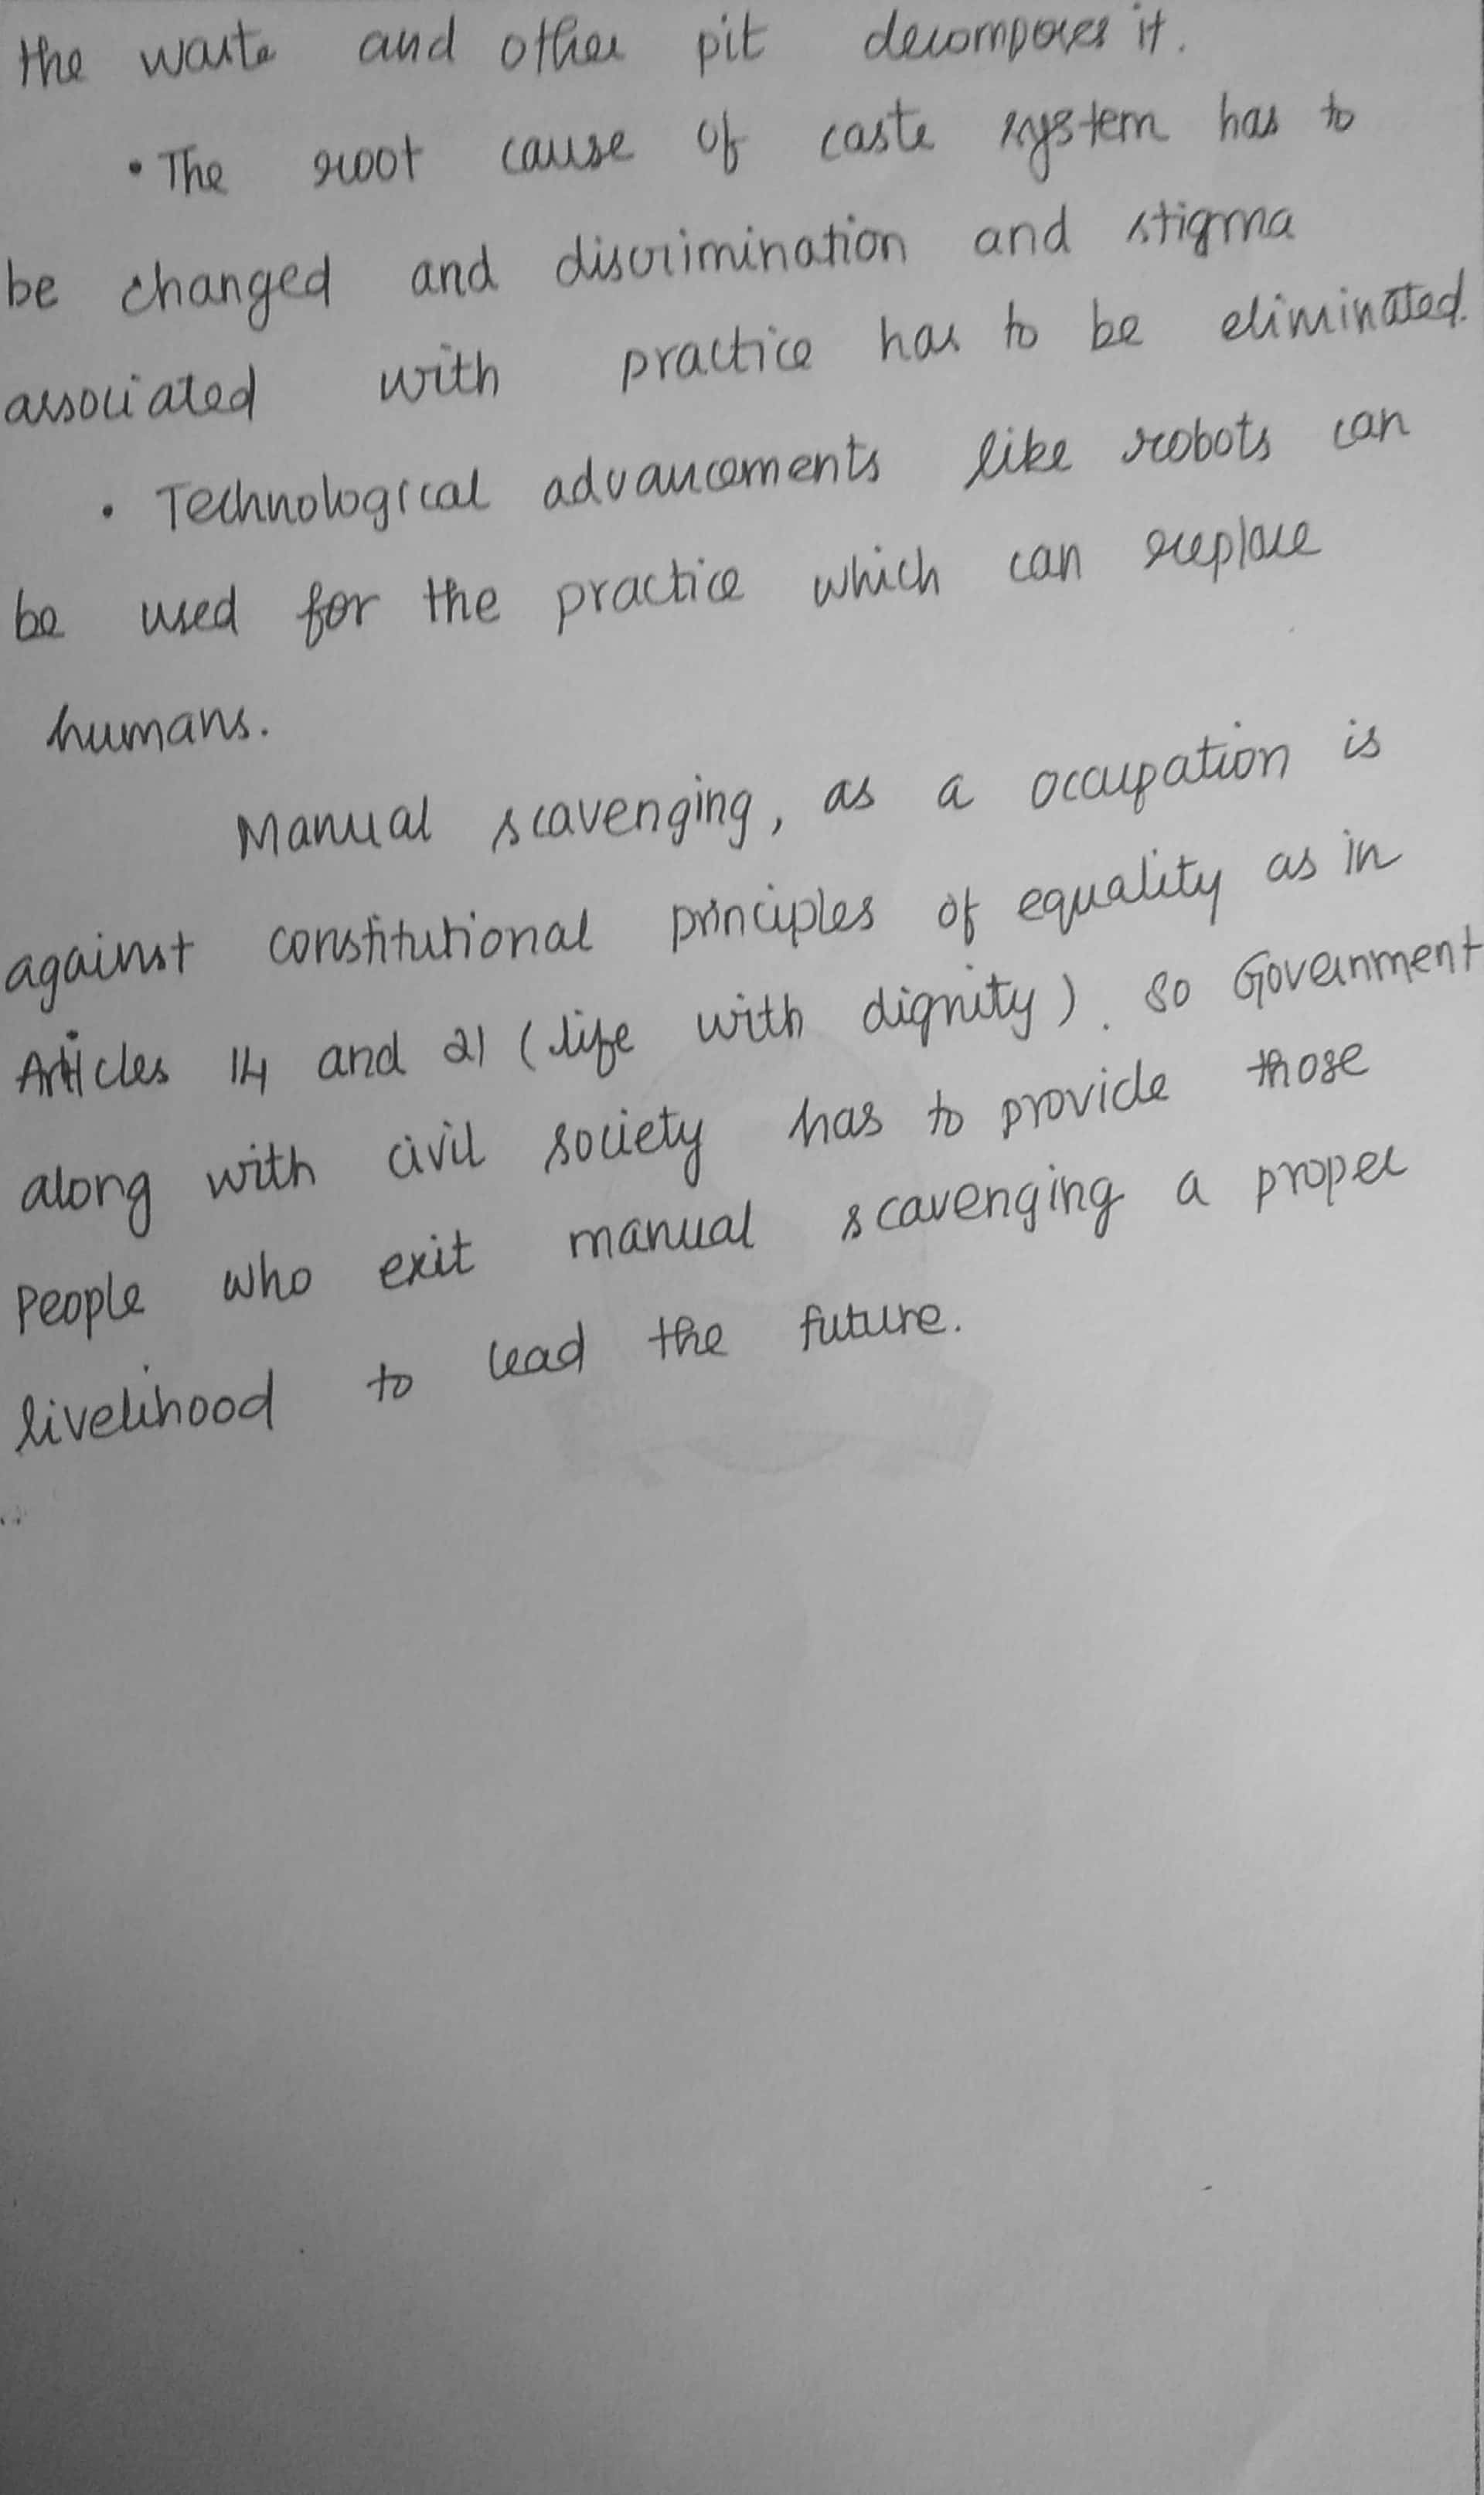 the waste and other pit decomposes it.
• The root cause of caste system has to
be changed and discrimination and stigma
associated with practice has to be eliminated.
• Technological advancements like robots can
be used for the practice which can replace
humans.
Manual scavenging, as a occupation is
against constitutional principles of equality as in
Articles 14 and 21 (life with dignity). So Government
along with civil society has to provide those
People who exit manual scavenging a proper
livelihood to lead the future.